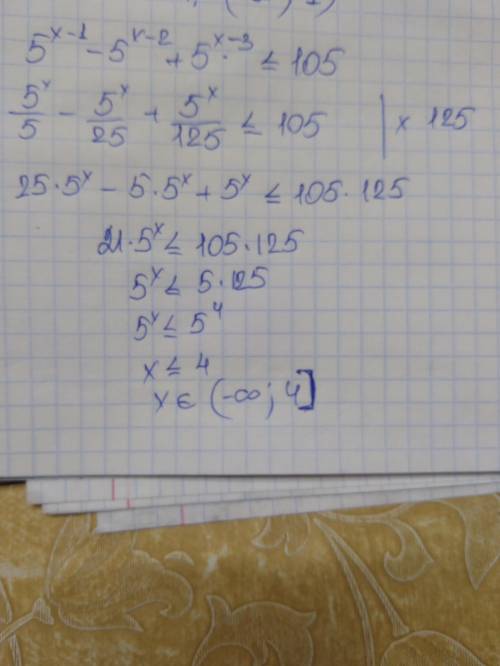 5^{x-1} - 5^{x-2} + 5^{x-3} ≤ 105
5^x/5 - 5^x/25 + 5^x/125 ≤ 105 | x 125
25·5^x - 5·5^x + 5^x ≤ 105·125
21·5^x ≤ 105·125
5^x ≤ 5·125
5^x ≤ 5^4
x ≤ 4
x ∈ (-∞; 4]